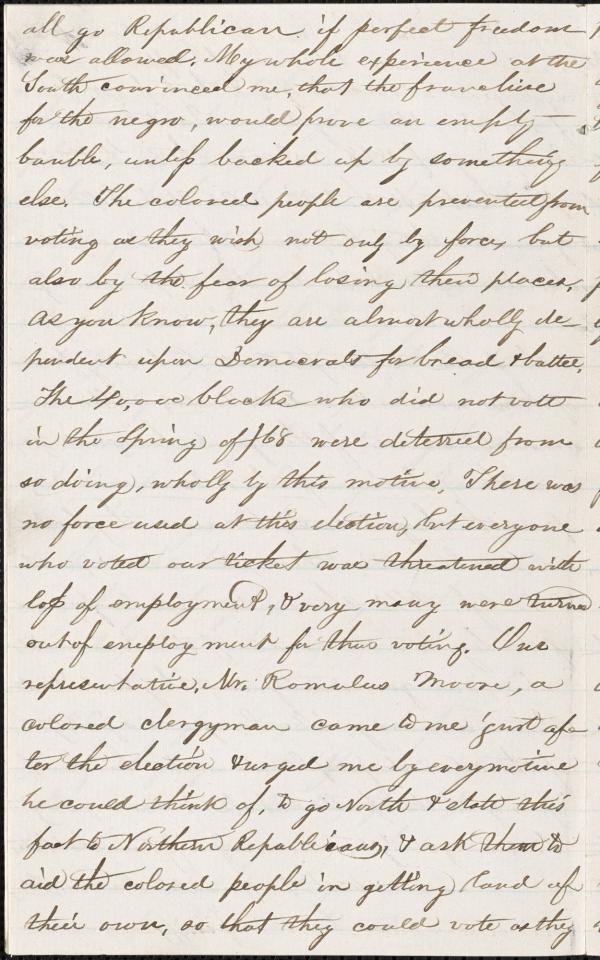 all go Republican if perfect freedom
was allowed. My whole experience at the
South convinced me, that the franchise
for the negro, would prove an empty
bauble, unless backed up by something
else. The colored people are prevented from
voting as they wish, not only by force, but
also by the fear of losing their places,
As you know, they are almost wholly de-
pendent upon Democrats for bread & butter,
The 40,000 blacks who did not vote
in the Spring of /68 were deterred from
so doing, wholly by this motive. There was
no force used at this election, but everyone
who voted our ticket was threatened with
loss of employment, & very many were turned
out of employment for thus voting. Our
representative, Mr. Romulus Moore, a
colored clergyman came to me just af-
ter the election & urged me by every motive
he could think of, to go North & state this
fact to Northern Republicans, & ask them to
aid the colored people in getting land of
their own, so that they could vote as they